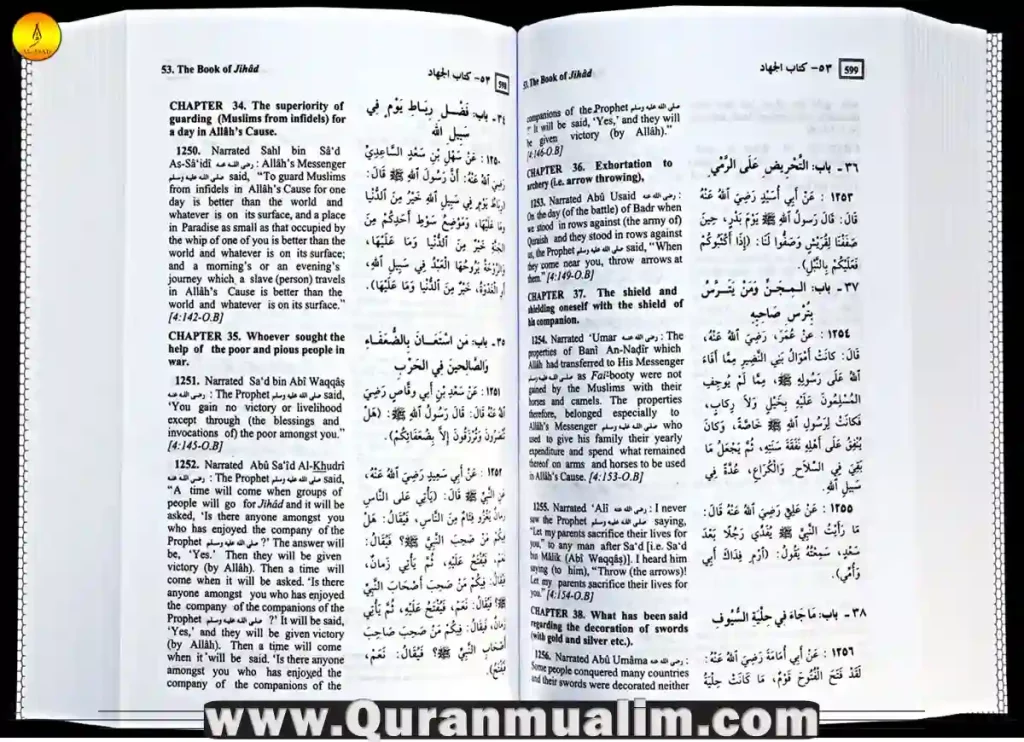 53. The Book of Jihâd
٥٣- كتاب الجهاد
CHAPTER 34. The superiority of
guarding (Muslims from infidels) for
a day in Allâh's Cause.
1250. Narrated Sahl bin Sâ'd
As-Sâ'idî رضى الله عنه : Allâh's Messenger
صلى الله عليه وسلم said, "To guard Muslims
from infidels in Allâh's Cause for one
day is better than the world and
whatever is on its surface, and a place
in Paradise as small as that occupied by
the whip of one of you is better than the
world and whatever is on its surface;
and a morning's or an evening's
journey which a slave (person) travels
in Allâh's Cause is better than the
world and whatever is on its surface."
[4:142-O.B]
CHAPTER 35. Whoever sought the
help of the poor and pious people in
war.
1251. Narrated Sa'd bin Abî Waqqâs
رضى الله عنه : The Prophet صلى الله عليه وسلم said,
'You gain no victory or livelihood
except through (the blessings and
invocations of) the poor amongst you."
[4:145-O.B]
1252. Narrated Abû Sa'îd Al-Khudrî
رضى الله عنه : The Prophet صلى الله عليه وسلم said,
"A time will come when groups of
people will go for Jihâd and it will be
asked, 'Is there anyone amongst you
who has enjoyed the company of the
Prophet صلى الله عليه وسلم ?' The answer will
be, 'Yes.' Then they will be given
victory (by Allâh). Then a time will
come when it will be asked. 'Is there
anyone amongst you who has enjoyed
the company of the companions of the
Prophet صلى الله عليه وسلم ?' It will be said,
'Yes,' and they will be given victory
(by Allâh). Then a time will come
when it will be said. 'Is there anyone
amongst you who has enjoyed the
company of the companions of the
٣٤- باب: فَضْل رِبَاطِ يَوْمٍ فِي
سَبِيلِ اللهِ
١٢٥٠: عَنْ سَهْلِ بْنِ سَعْدٍ السَّاعِدِيِّ
رَضِيَ اللهُ عَنْهُ: أَنَّ رَسُولَ اللهِ ﷺ قَالَ:
(رِبَاطُ يَوْمٍ فِي سَبِيلِ اللهِ خَيْرٌ مِنَ الدُّنْيَا
وَمَا عَلَيْهَا، وَمَوْضِعُ سَوْطِ أَحَدِكُمْ مِنَ
الجَنَّةِ خَيْرٌ مِنَ الدُّنْيَا وَمَا عَلَيْهَا،
وَالرَّوْحَةُ يَرُوحُهَا الْعَبْدُ فِي سَبِيلِ اللهِ،
أَوِ الْغَدْوَةُ، خَيْرٌ مِنَ الدُّنْيَا وَمَا عَلَيْهَا).
٣٥- باب: مَنِ اسْتَعَانَ بِالضُّعَفَاءِ
وَالصَّالِحِينَ فِي الحَرْبِ
١٢٥١: عَنْ سَعْدِ بْنِ أَبِي وَقَّاصٍ رَضِيَ
اللهُ عَنْهُ قَالَ: قَالَ رَسُولُ اللهِ ﷺ: (هَلْ
تُنْصَرُونَ وَتُرْزَقُونَ إِلاَّ بِضُعَفَائِكُمْ).
١٢٥٢: عَنْ أَبِي سَعِيدٍ رَضِيَ اللهُ عَنْهُ،
عَنِ النَّبِيِّ ﷺ قَالَ: (يَأْتِي عَلَى النَّاسِ
زَمَانٌ يَغْزُو فِئَامٌ مِنَ النَّاسِ، فَيُقَالُ: هَلْ
فِيكُمْ مَنْ صَحِبَ النَّبِيَّ ﷺ؟ فَيُقَالُ:
نَعَمْ، فَيُفْتَحُ عَلَيْهِ، ثُمَّ يَأْتِي زَمَانٌ،
فَيُقَالُ: فِيكُمْ مَنْ صَحِبَ أَصْحَابَ النَّبِيِّ
ﷺ؟ فَيُقَالُ: نَعَمْ، فَيُفْتَحُ عَلَيْهِ، ثُمَّ يَأْتِي
زَمَانٌ، فَيُقَالُ: فِيكُمْ مَنْ صَحِبَ صَاحِبَ
أَصْحَابِ النَّبِيِّ ﷺ؟ فَيُقَالُ: نَعَمْ،
فَيُفْتَحُ).
The Book of Jihâd
٥٣- كتاب الجهاد
599
companions of the Prophet صلى الله عليه وسلم
?' It will be said, 'Yes,' and they will
be given victory (by Allâh)."
[4:146-O.B]
CHAPTER 36. Exhortation to
archery (i.e. arrow throwing),
1253. Narrated Abû Usaid رضى الله عنه :
On the day (of the battle) of Badr when
we stood in rows against (the army of)
Quraish and they stood in rows against
us, the Prophet صلى الله عليه وسلم said, "When
they come near you, throw arrows at
them." [4:149-O.B]
CHAPTER 37. The shield and
shielding oneself with the shield of
his companion.
1254. Narrated 'Umar رضى الله عنه : The
properties of Banî An-Nadîr which
Allâh had transferred to His Messenger
صلى الله عليه وسلم as Fai-booty were not
gained by the Muslims with their
horses and camels. The properties
therefore, belonged especially to
Allâh's Messenger صلى الله عليه وسلم who
used to give his family their yearly
expenditure and spend what remained
thereof on arms and horses to be used
in Allâh's Cause. [4:153-O.B]
1255. Narrated 'Alî رضى الله عنه : I never
saw the Prophet صلى الله عليه وسلم saying,
"Let my parents sacrifice their lives for
you," to any man after Sa'd [i.e. Sa'd
bin Mâlik (Abî Waqqâs)]. I heard him
saying (to him), "Throw (the arrows)!
Let my parents sacrifice their lives for
you." [4:154-O.B]
CHAPTER 38. What has been said
regarding the decoration of swords
(with gold and silver etc.).
1256. Narrated Abû Umâma رضى الله عنه :
Some people conquered many countries
and their swords were decorated neither
٣٦- باب: التَّحْرِيضِ عَلَى الرَّمْيِ
١٢٥٣: عَنْ أَبِي أُسَيْدٍ رَضِيَ اللهُ عَنْهُ
قَالَ: قَالَ رَسُولُ اللهِ ﷺ يَوْمَ بَدْرٍ، حِينَ
صَفَفْنَا لِقُرَيْشٍ وَصَفُّوا لَنَا: (إِذَا أَكْثَبُوكُمْ
فَعَلَيْكُمْ بِالنَّبْلِ).
٣٧- باب: المِجَنِّ وَمَنْ يَتَتَرَّسُ
بِتُرْسِ صَاحِبِهِ
١٢٥٤: عَنْ عُمَرَ، رَضِيَ اللهُ عَنْهُ،
قَالَ: كَانَتْ أَمْوَالُ بَنِي النَّضِيرِ مِمَّا أَفَاءَ
اللهُ عَلَى رَسُولِهِ ﷺ، مِمَّا لَمْ يُوجِفِ
المُسْلِمُونَ عَلَيْهِ بِخَيْلٍ وَلاَ رِكَابٍ،
فَكَانَتْ لِرَسُولِ اللهِ ﷺ خَاصَّةً، وَكَانَ
يُنْفِقُ عَلَى أَهْلِهِ نَفَقَةَ سَنَتِهِ، ثُمَّ يَجْعَلُ مَا
بَقِيَ فِي السِّلاَحِ وَالْكُرَاعِ، عُدَّةً فِي
سَبِيلِ اللهِ.
١٢٥٥: عَنْ عَلِيٍّ رَضِيَ اللهُ عَنْهُ قَالَ:
مَا رَأَيْتُ النَّبِيَّ ﷺ يُفَدِّي رَجُلًا بَعْدَ
سَعْدٍ، سَمِعْتُهُ يَقُولُ: (ارْمِ فِدَاكَ أَبِي
وَأُمِّي).
٣٨- باب: مَا جَاءَ فِي حِلْيَةِ السُّيُوفِ
١٢٥٦: عَنْ أَبِي أُمَامَةَ رَضِيَ اللهُ عَنْهُ:
لَقَدْ فَتَحَ الْفُتُوحَ قَوْمٌ، مَا كَانَتْ حِلْيَةُ
www.Quranmualim.com